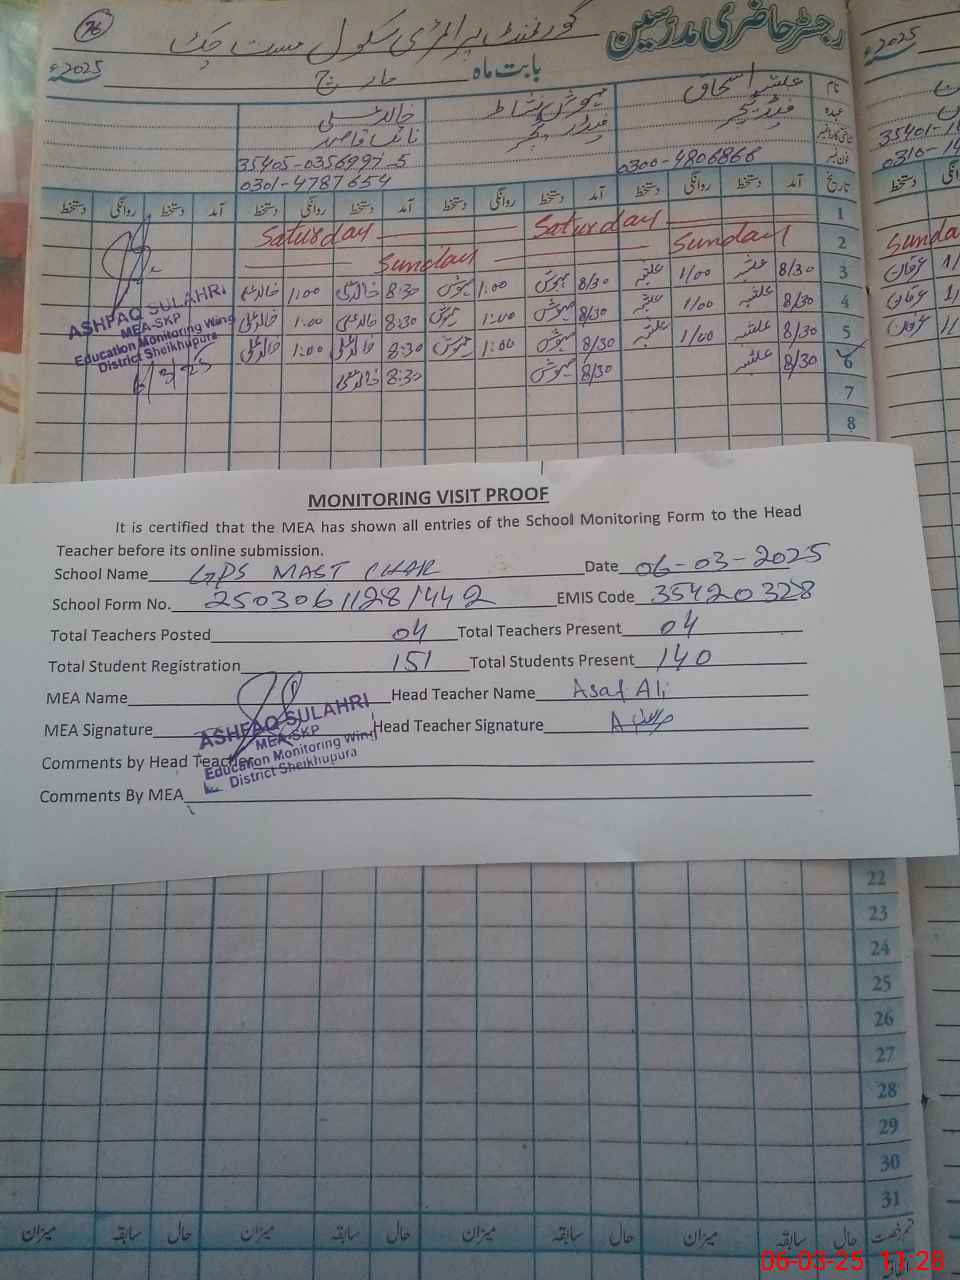 76
رجسٹر حاضری مدرسین
گورنمنٹ پرائمری سکول مست چک
بابت ماہ مارچ 2025ء
2025ء
نام علشبہ اسحاق مہوش نشاط خالد علی
عہدہ نائب قاصد
35405-0356997-5
فون نمبر 0300-4806866 0301-4787654
35401-1
0310-14
تاریخ آمد دستخط روانگی دستخط آمد دستخط روانگی دستخط آمد دستخط روانگی دستخط آمد دستخط روانگی دستخط
1 Saturday Saturday
2 Sunday Sunday Sunda
3 8/30 علشبہ 1/00 علشبہ 8/30 مہوش 1:00 مہوش 8:30 خالد علی 1:00 خالد علی
4 8/30 علشبہ 1/00 علشبہ 8/30 مہوش 1:00 مہوش 8:30 خالد علی 1:00 خالد علی
5 8/30 علشبہ 1/00 علشبہ 8/30 مہوش 1:00 مہوش 8:30 خالد علی 1:00 خالد علی
6 8/30 علشبہ 8/30 مہوش 8:30 خالد علی
7
8
عرفان
عرفان
عرفان
ASHFAQ SULAHRI
MEA-SKP
Education Monitoring Wing
District Sheikhupura
6/3/25
MONITORING VISIT PROOF
It is certified that the MEA has shown all entries of the School Monitoring Form to the Head
Teacher before its online submission.
School Name GPS MAST CHAK Date 06-03-2025
School Form No. 25030611281442 EMIS Code 35420328
Total Teachers Posted 04 Total Teachers Present 04
Total Student Registration 151 Total Students Present 140
MEA Name Head Teacher Name Asaf Ali
MEA Signature Head Teacher Signature
ASHFAQ SULAHRI
MEA-SKP
Education Monitoring Wing
District Sheikhupura
Comments by Head Teacher
Comments By MEA
22
23
24
25
26
27
28
29
30
31
حال سابقہ میزان حال سابقہ میزان حال سابقہ میزان حال سابقہ میزان
06-03-25 11:28